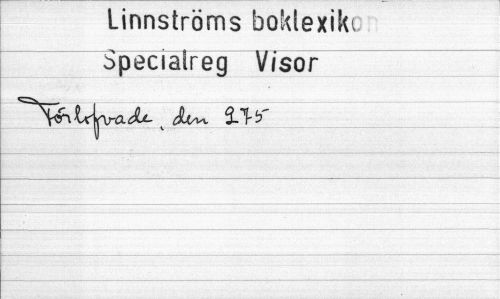 Linnströms boklexikon
Specialreg Visor
Förlofvade, den 275